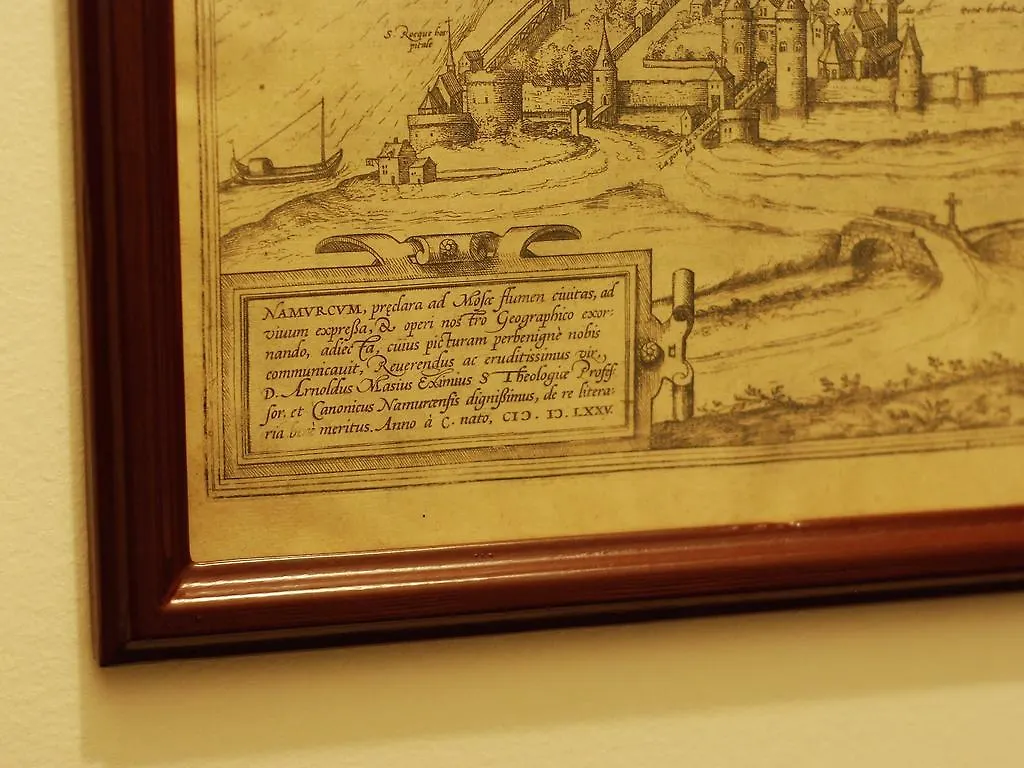 S. Rocque hos
pitale
NAMVRCVM, pręclara ad Mosæ flumen ciuitas, ad
viuum expreßa, & operi nostro Geographico exor-
nando, adiecta, cuius picturam perbenignè nobis
communicauit, Reuerendus ac eruditissimus vir,
D. Arnoldus Masius Eximius S Theologiæ Profes
sor, et Canonicus Namurcensis dignißimus, de re litera-
ria meritus. Anno à C. nato, CIↃ. IↃ. LXXV.